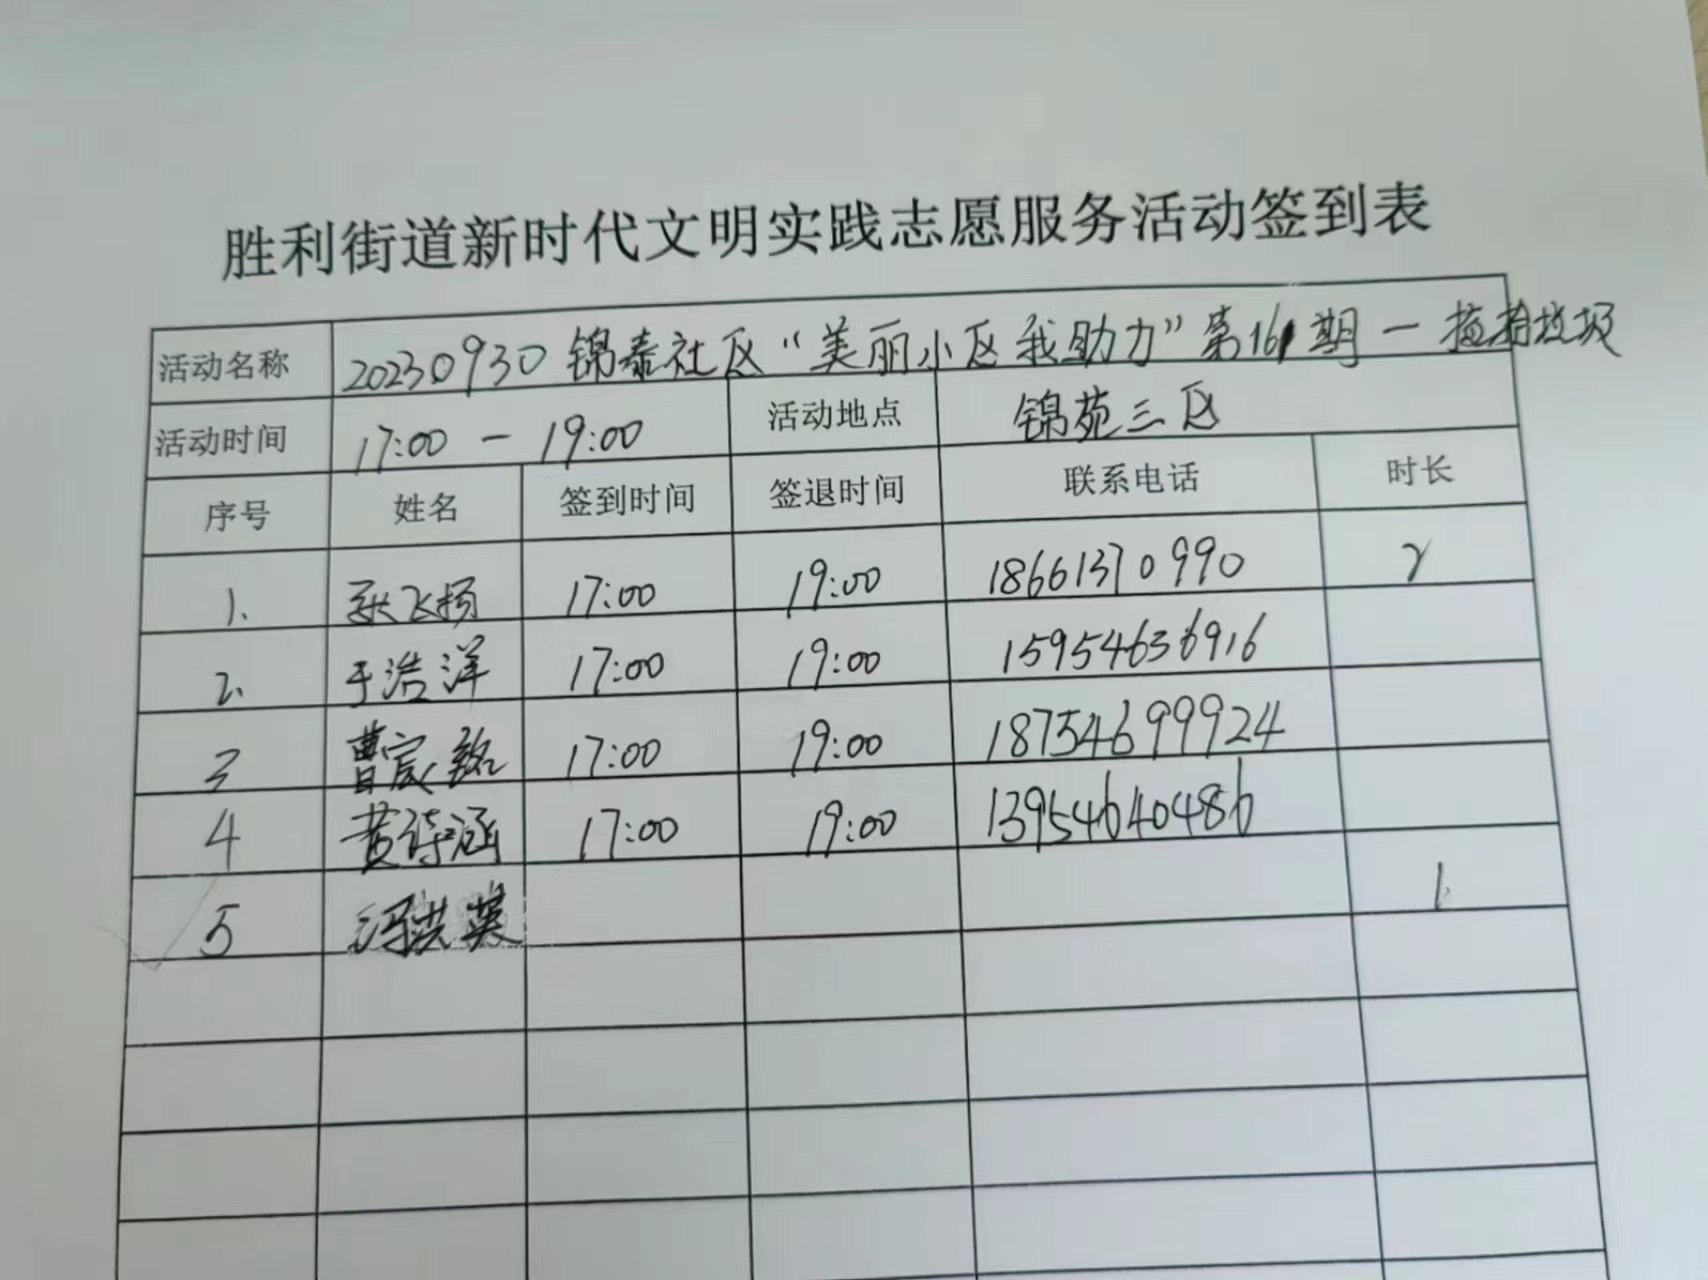 胜利街道新时代文明实践志愿服务活动签到表
活动名称 20230930锦泰社区“美丽小区我助力”第161期一捡拾垃圾
活动时间 17:00 - 19:00 活动地点 锦苑三区
序号 姓名 签到时间 签退时间 联系电话 时长
1. 耿飞扬 17:00 19:00 18661370990 2
2. 于浩洋 17:00 19:00 15954636916
3 曹宸铭 17:00 19:00 18754699924
4 黄诗涵 17:00 19:00 13954640486
5 冯洪英